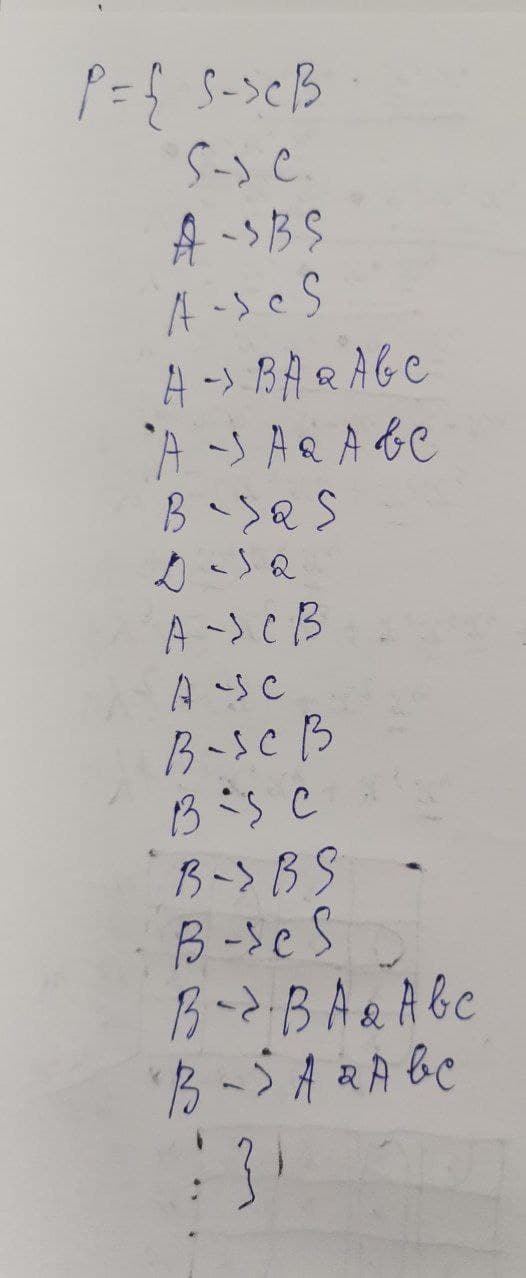 P={ S->cB
S->c
A->BS
A->cS
A->BAaAbc
A->AaAbc
B->aS
D->a
A->cB
A->c
B->cB
B->c
B->BS
B->cS
B->BAaAbc
B->AaAbc
}